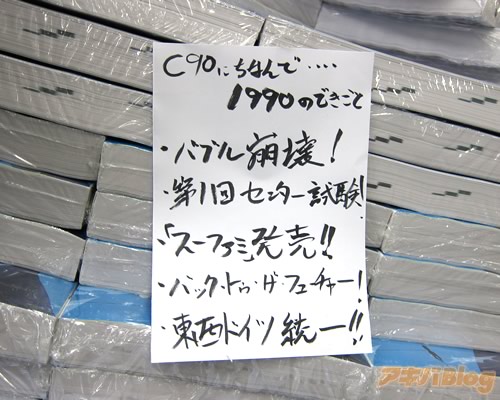 C90にちなんで‥‥
1990のできごと
・バブル崩壊!
・第1回センター試験!
・「スーファミ」発売!!
・バック・トゥ・ザ・フューチャー!
・東西ドイツ統一!!
アキバBlog